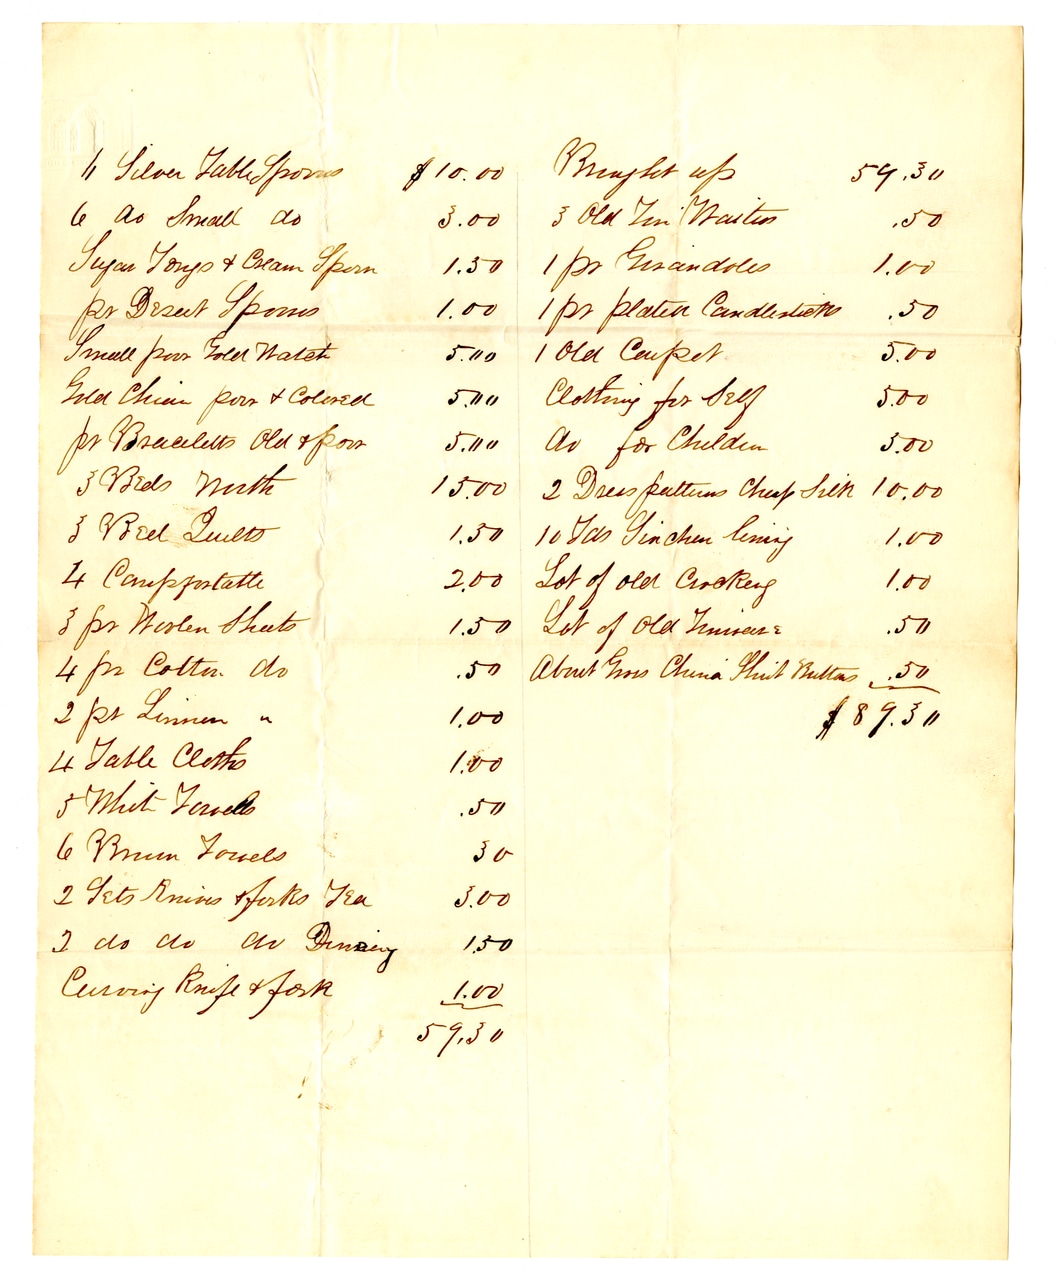 11 Silver Table Spoons $10.00
6 do Small do 3.00
Sugar Tongs & Cream Spoon 1.50
pr Desert Spoons 1.00
Small poor Gold Watch 5.00
Gold Chain poor & Colored 5.00
pr Braceletts Old & poor 5.00
3 Beds Worth 15.00
3 Bed Quilts 1.50
4 Compfortable 2.00
3 pr Woolen Sheets 1.50
4 pr Cotton do .50
2 pr Linnen " 1.00
4 Table Cloths 1.00
5 White Towels .50
6 Brown Towels 30
2 Sets Knives & forks Tea 3.00
2 do do do Dinning 1.50
Carving Knife & fork 1.00
59.30
Brought up 59.30
3 Old Tin Waiters .50
1 pr Girandoles 1.00
1 pr plated Candlesticks .50
1 Old Carpet 5.00
Clothing for Self 5.00
do for Children 5.00
2 Dress patterns Cheap Silk 10.00
10 Yds lining 1.00
Lot of old Crockery 1.00
Lot of Old Tinware .50
About Gros China Shirt Buttons .50
$89.30